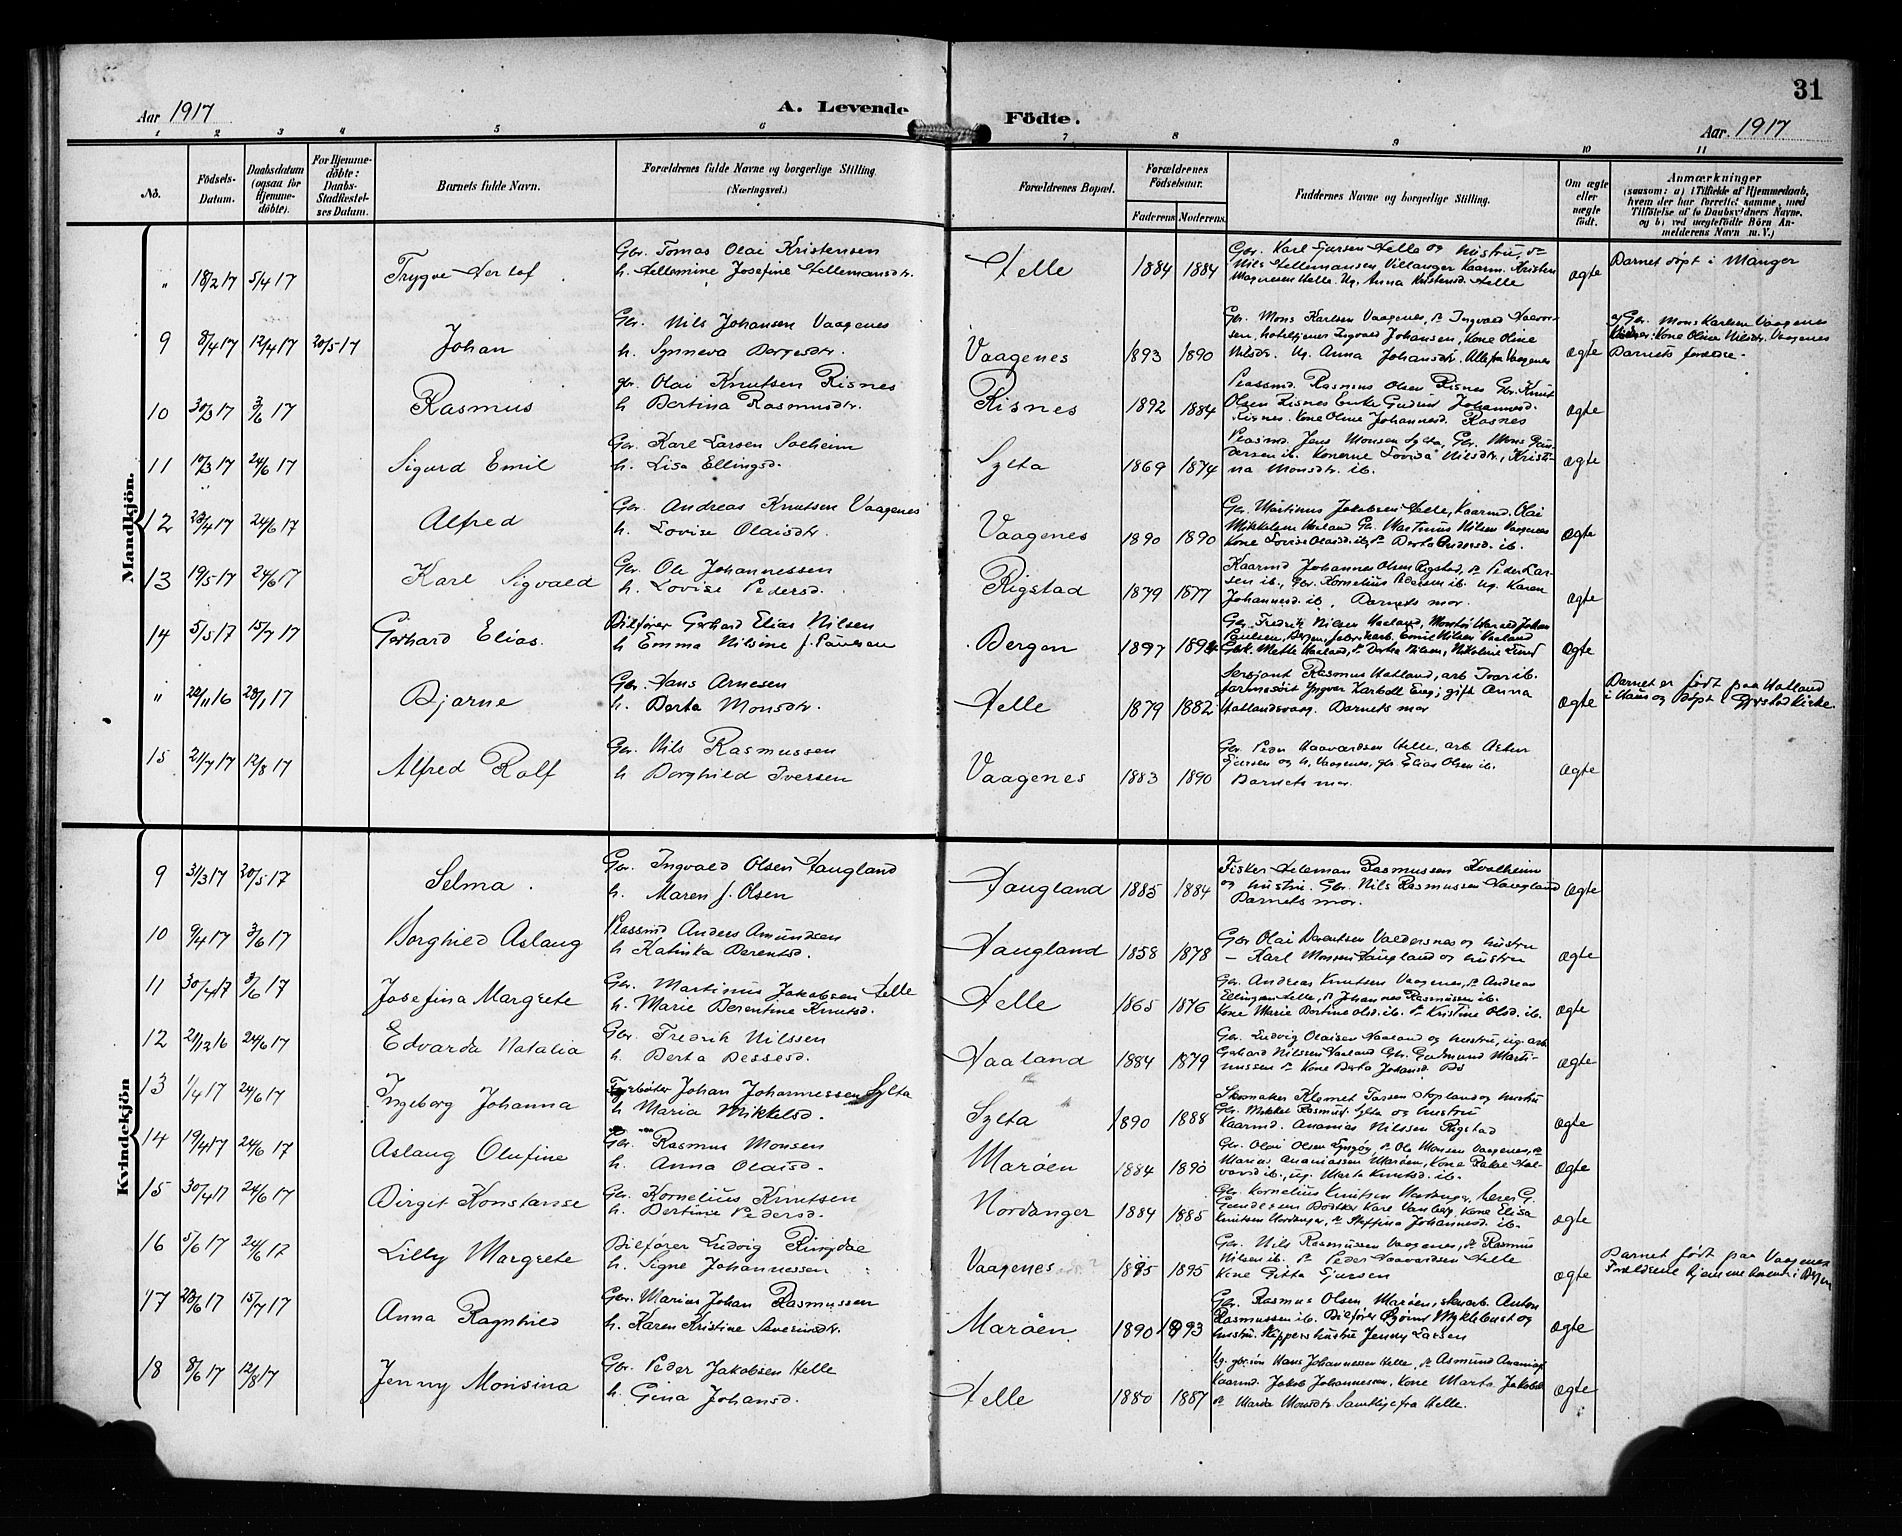 31
Aar 1917
A. Levende Födte.
Aar. 1917
1 2 3 4 5 6 7 8 9 10 11
No.
Födsels-Datum.
Daabsdatum (ogsaa for Hjemme-döbte).
For Hjemme-döbte: Daabs-Stadfæstel-ses Datum.
Barnets fulde Navn.
Forældrenes fulde Navne og borgerlige Stilling. (Næringsvei.)
Forældrenes Bopæl.
Forældrenes Födselsaar.
Faderens Moderens.
Faddernes Navne og borgerlige Stilling.
Om ægte eller uægte födt.
Anmærkninger
(saasom: a) i Tilfælde af Hjemmedaab, hvem der har forrettet samme, med Tilföielse af to Daabsvidners Navne, og b) ved uægtefödte Börn An-melderens Navn m. V.)
Mandkjön.
" 18/2 17 5/4 17 Trygve Detlof
Gbr. Tomas Olai Kristensen
h. Hellemine Josefine Hellemansdtr.
Helle 1884 1884
Gbr. Karl Gjersen Helle og hustru, do
Nils Hellemansen Villanger Kaarm. Kristen
Magnesen Helle. Ug. Anna Kristensd. Helle
ægte
Barnet döpt i Manger
9 8/4 17 12/4 17 20/5 17 Johan
Gbr. Nils Johansen Vaagenes
h. Synneva Børgesdtr.
Vaagenes 1893 1890
Gbr. Mons Karlsen Vaagenes, do Ingvald Haavor-
sen, Ingvald Johansen, Kone Oline
Nilsdr. Ug. Anna Johansdtr. Alle fra Vaagenes
ægte
af Gbr. Mons Karlsen Vaagenes
Kone Oline Nilsdtr. Vaagenes
Barnets forældre.
10 30/3 17 3/6 17 Rasmus
gbr. Olai Knutsen Risnes
h Bertina Rasmusdtr.
Risnes 1892 1884
Plassmd. Rasmus Olsen Risnes Gbr. Knut
Olsen Risnes Enke Gudrid Johannesd.
Risnes. Kone Oline Johannesd. Risnes
ægte
11 10/3 17 24/6 17 Sigurd Emil
Gbr. Karl Larsen Solheim
h. Lisa Ellingsd.
Sylta 1869 1874
Plasmd. Jens Monsen Sylta, Gbr. Mons Gun-
dersen ib. Konerne Lovisa Nilsdtr., Kristi-
na Monsdtr. ib.
ægte
12 23/4 17 24/6 17 Alfred
Gbr. Andreas Knutsen Vaagenes
h. Lovise Olaisdtr.
Vaagenes 1890 1890
Gbr. Martinus Jakobsen Helle, Kaarmd. Olai
Mikkelsen Haaland Gbr. Martinus Nilsen Vaagenes
Kone Lovise Olaisd. ib, do Berta Andersd. ib.
ægte
13 19/5 17 24/6 17 Karl Sigvald
Gbr. Ole Johannessen
h. Lovise Pedersd.
Rigstad 1879 1877
Kaarmd Johannes Olsen Rigstad, do Peder Lar-
sen ib., Gbr. Kornelius Pedersen ib. Ug. Karen
Johannesd. ib. Barnets mor.
ægte
14 5/5 17 15/7 17 Gerhard Elias.
Bilfører Gerhard Elias Nilsen
h Emma Nilsine f. Paulsen
Bergen 1897 1894
Gbr. Fredrik Nilsen Haaland, Johan
Paulsen, Bergen, fabrikarb. Emil Nilsen Haaland
Gbk. Mette Haaland, do Berta Nilsen, Nikoline Lind
ægte
" 22/11 16 28/1 17 Bjarne
Gbr. Hans Arnesen
h. Berta Monsdtr.
Helle 1879 1882
Sersjant Rasmus Hatland, arb Ivar ib.
farmasöit Yngvar Karboll Eng; gift Anna
Hatlandsvaag. Barnets mor
ægte
Barnet er födt paa Hatland
i Haus og döpt i Gjerstad kirke.
15 21/7 17 12/8 17 Alfred Rolf
Gbr. Nils Rasmussen
h Borghild Iversen
Vaagenes 1883 1890
Gbr. Peder Haavardsen Helle, arb. Astor
Gjersen og h. Vaagenes, gbr. Elias Olsen ib.
Barnets mor.
ægte
Kvindekjön
9 31/3 17 20/5 17 Selma.
Gbr. Ingvald Olsen Haugland
h. Maren J. Olsen
Haugland 1885 1884
Fisker Heleman Rasmussen Kvalheim
og hustru. Gbr. Nils Rasmussen Haugland
Barnets mor.
ægte
10 9/4 17 3/6 17 Borghild Aslaug
Plassmd Anders Amundsen
h Katinka Berentsd.
Haugland 1858 1878
Gbr Olai Berentsen Valdersnes og hustru
— Karl Monsen Haugland og hustru
ægte
11 30/4 17 3/6 17 Josefina Margrete
Gbr. Martinus Jakobsen Helle
h. Marie Berentine Knutsd.
Helle 1865 1876
Gbr. Andreas Knutsen Vaagenes, do Andreas
Ellingsen Helle, do Johannes Rasmussen ib.
Kone Marie Bertine Olsd. ib. do Kristine Olsd. ib.
ægte
12 21/12 16 24/6 17 Edvarda Natalia
Gbr. Fredrik Nilssen
h. Berta Bessesd.
Haaland 1884 1879
Gbr. Ludvig Olaisen Haaland og hustru, ug. arb.
Gerhard Nilssen Haaland Gbr. Gudmund Marti-
nussen do Kone Berta Johansd. Bö
ægte
13 1/4 17 24/6 17 Ingeborg Johanna
Fyrböter Johan Johannessen Sylta
h Maria Mikkelsd.
Sylta 1890 1888
Skomaker Klemet Tarsen Hopland og hustru
Gbr. Mikkel Rasmus. Sylta og hustru
Kaarmd. Ananias Nilssen Rigstad
ægte
14 19/4 17 24/6 17 Aslaug Olufine
Gbr. Rasmus Monsen
h. Anna Olaisd.
Maröen 1884 1890
Gbr. Olai Olsen Lygöy, do Ole Monsen Vaagenes, do
Marius Ananiassen Maröen, Kone Rakel Hal-
vorsd ib., ug. Marta Knutsd. ib.
ægte
15 30/4 17 24/6 17 Birgit Konstanse
Gbr. Kornelius Knutsen
h. Bertine Pedersd.
Nordanger 1884 1885
Gbr. Kornelius Knutsen Nordanger, Lærer G.
Gundersen Karl Vanberg, Kone Elisa
Knutsen Nordanger, do Steffina Johannesd. ib.
ægte
16 5/6 17 24/6 17 Lilly Margrete
Bilfører Ludvig Ringdal
h. Signe Johannessen
Vaagenes 1895 1895
Gbr. Nils Rasmussen Vaagenes, do Rasmus
Nilsen ib. do Peder Haavardsen Helle
Kone Gitta Gjersen
ægte
Barnet födt paa Vaagenes
Forældrene hjemmehörende i Bergen
17 28/6 17 15/7 17 Anna Ragnhild
Gbr. Marius Johan Rasmussen
h. Karen Kristine Severinsdtr.
Maröen 1890 1893
Gbr. Rasmus Olsen Maröen, Anton
Rasmussen ib. Bilförer Myklebust og
hustru. Skippers hustru Jenny Larsen
ægte
18 8/6 17 12/8 17 Jenny Monsina
Gbr. Peder Jakobsen Helle
h. Gina Johansd.
Helle 1880 1887
Ug. gbr.sön Hans Johannessen Helle, do Asmund Ananias.
Kaarmd. Jakob Johannessen, Kone Marta Jakobsd.
do Marta Monsdtr. Samtlige fra Helle.
ægte